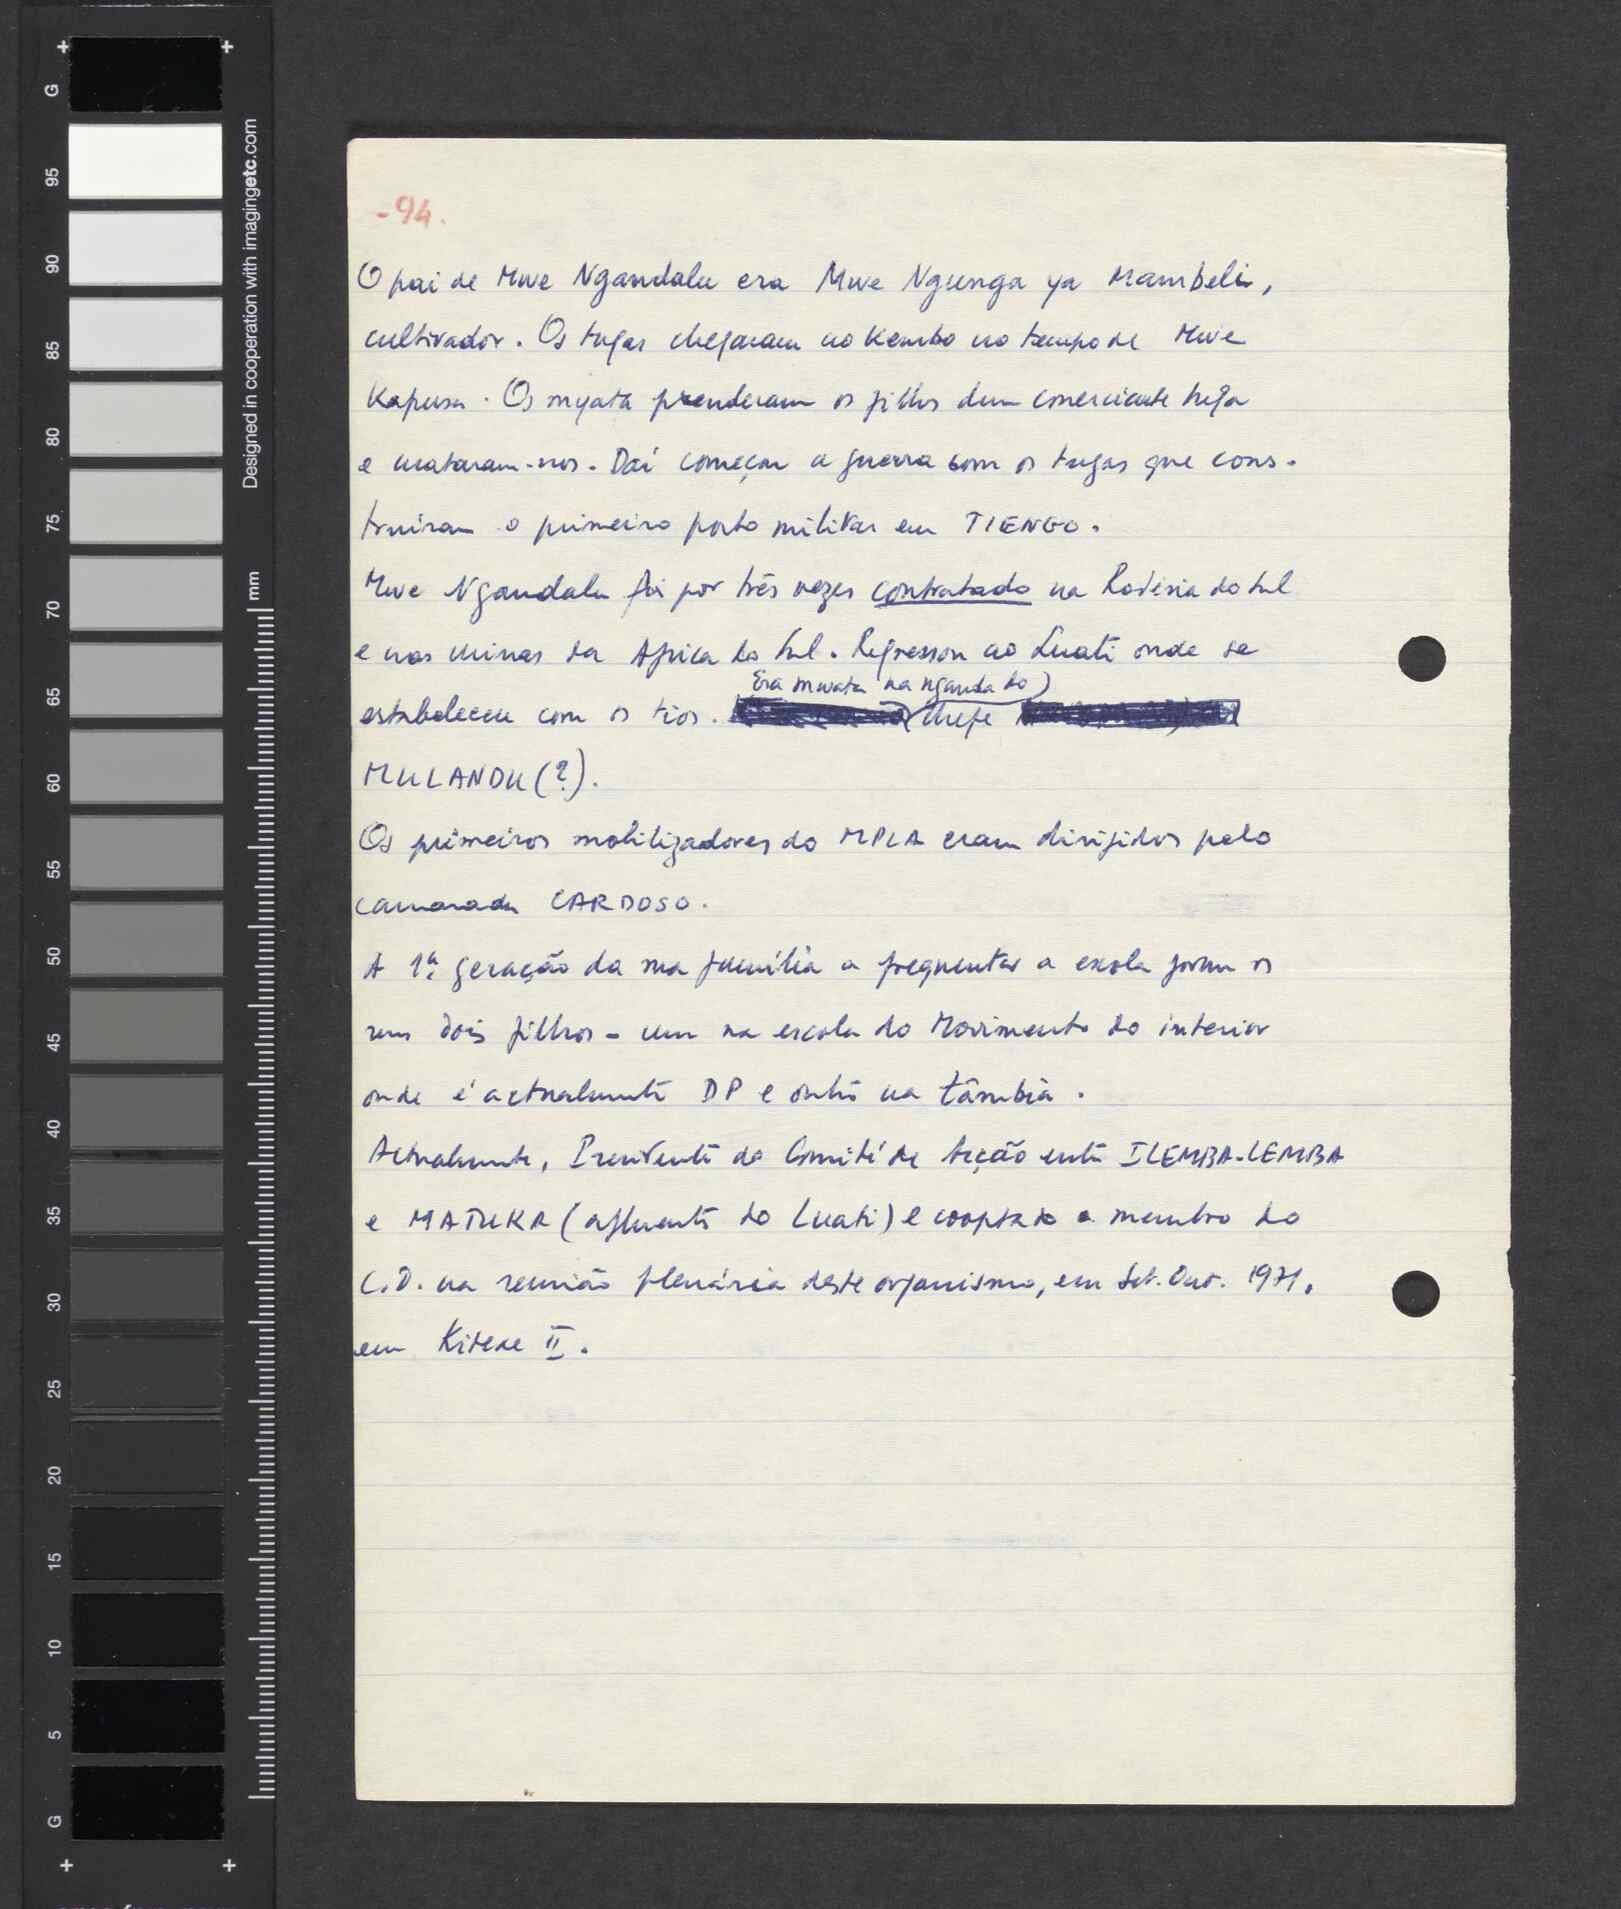 -94.
O pai de Mwe Ngandalu era Mwe Ngunga ya Mambeli,
cultivador. Os tugas chegaram ao Kembo no tempo de Mwe
Kapusu. Os myata prenderam os filhos dum comerciante tuga
e mataram-nos. Daí começou a guerra com os tugas que cons-
truiram o primeiro posto militar em TIENGO.
Mwe Ngandalu foi por três vezes contratado na Rodésia do Sul
e nas minas da Africa do Sul. Regressou ao Luati onde se
Era mwata na nganda do
estabeleceu com os tios. chefe
MULANDU (?).
Os primeiros mobilizadores do MPLA eram dirigidos pelo
camarada CARDOSO.
A 1ª geração da sua família a frequentar a escola foram os
seus dois filhos - um na escola do Movimento do interior
onde é actualmente DP e outro na Zâmbia.
Actualmente, Presidente do Comité de Acção entre ILEMBA-LEMBA
e MATUKA (afluente do Luati) e cooptado a membro do
C.D. na reunião plenária deste organismo, em Set. Out. 1971,
em Kitexe II.
Designed in cooperation with imagingetc.com
mm
G
95
90
85
80
75
70
65
60
55
50
45
40
35
30
25
20
15
10
5
G